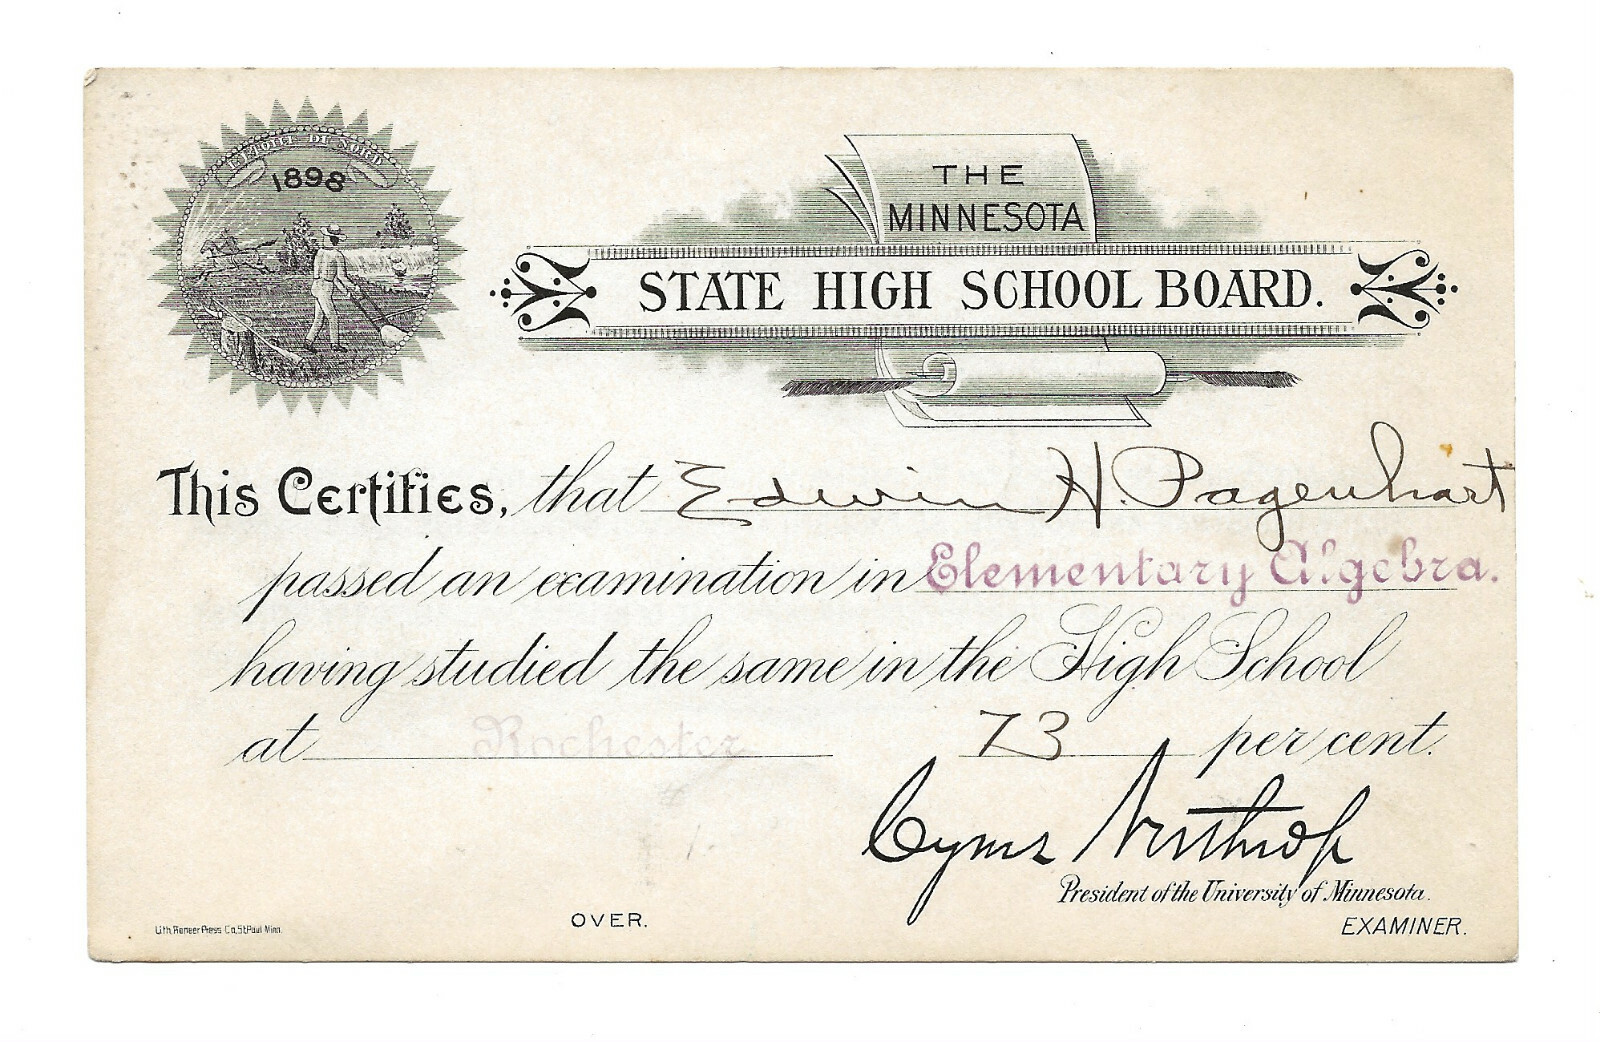 L'ETOILE DU NORD
1898
THE
MINNESOTA
STATE HIGH SCHOOL BOARD.
This Certifies, that Edwin H. Pagenhart
passed an examination in Elementary Algebra.
having studied the same in the High School
at Rochester 73 per cent.
Cyrus Northrop
President of the University of Minnesota.
EXAMINER.
OVER.
Lith. Pioneer Press Co. St. Paul Minn.